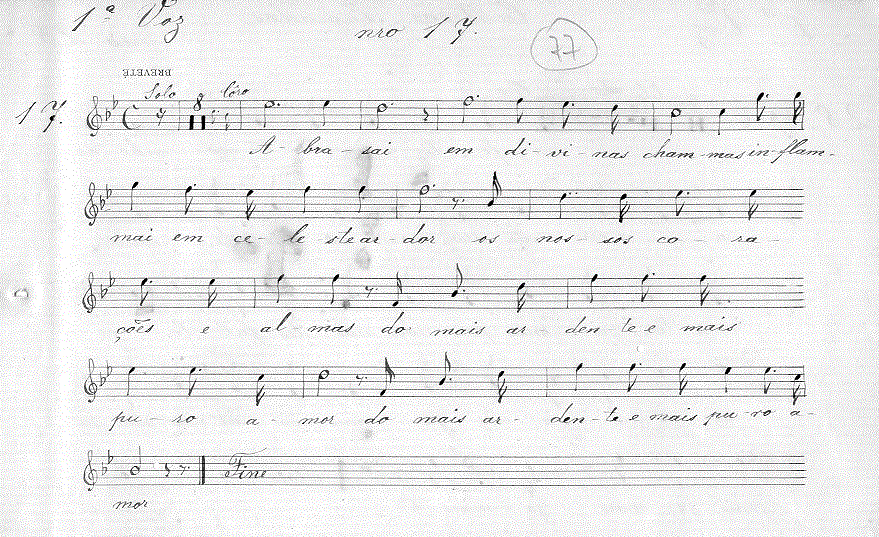 1ª Voz
nro 17.
77
BREVETÉ
Solo 8 Côro
17.
A- bra- sai em di- vi nas cham-mas in-flam-
mai em ce- le ste ar- dor os nos- sos co- ra-
ções e al- mas do mais ar- den- te e mais
pu- ro a- mor do mais ar- den- te e mais pu- ro a-
Fine
mor